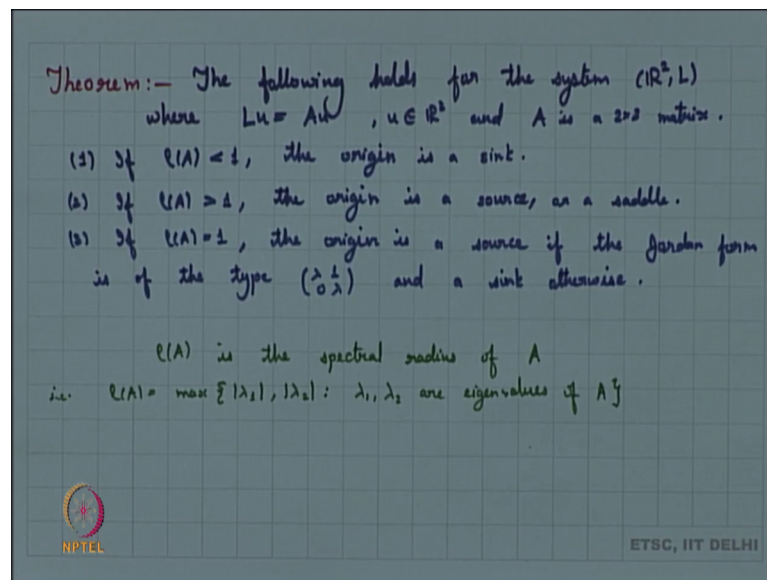 Theorem:- The following holds for the system (ℝ², L)
where Lu = Au , u ∈ ℝ² and A is a 2×2 matrix.
(1) If ρ(A) < 1, the origin is a sink.
(2) If ρ(A) > 1, the origin is a source, or a saddle.
(3) If ρ(A) = 1, the origin is a source if the Jordan form
is of the type (λ 1 0 λ) and a sink otherwise.
ρ(A) is the spectral radius of A
i.e. ρ(A) = max {|λ₁|, |λ₂| : λ₁, λ₂ are eigenvalues of A}
NPTEL
ETSC, IIT DELHI